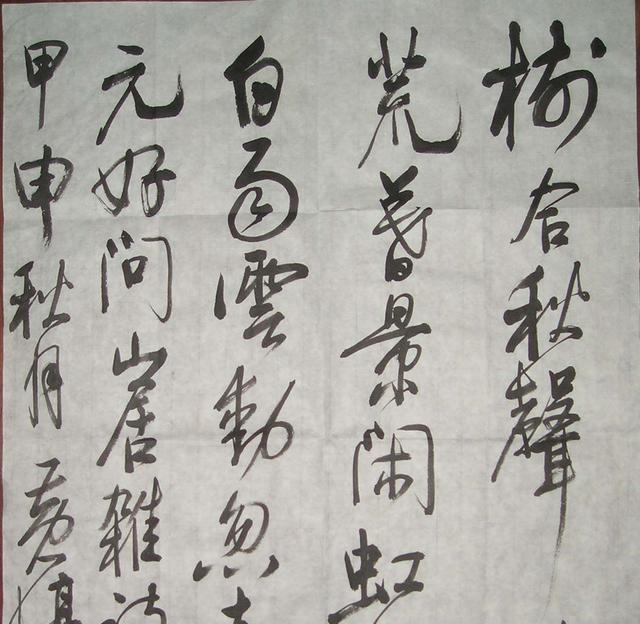 樹合秋聲
荒暮景閑虹
白雨雲動忽
元好問山居雜詩
甲申秋月